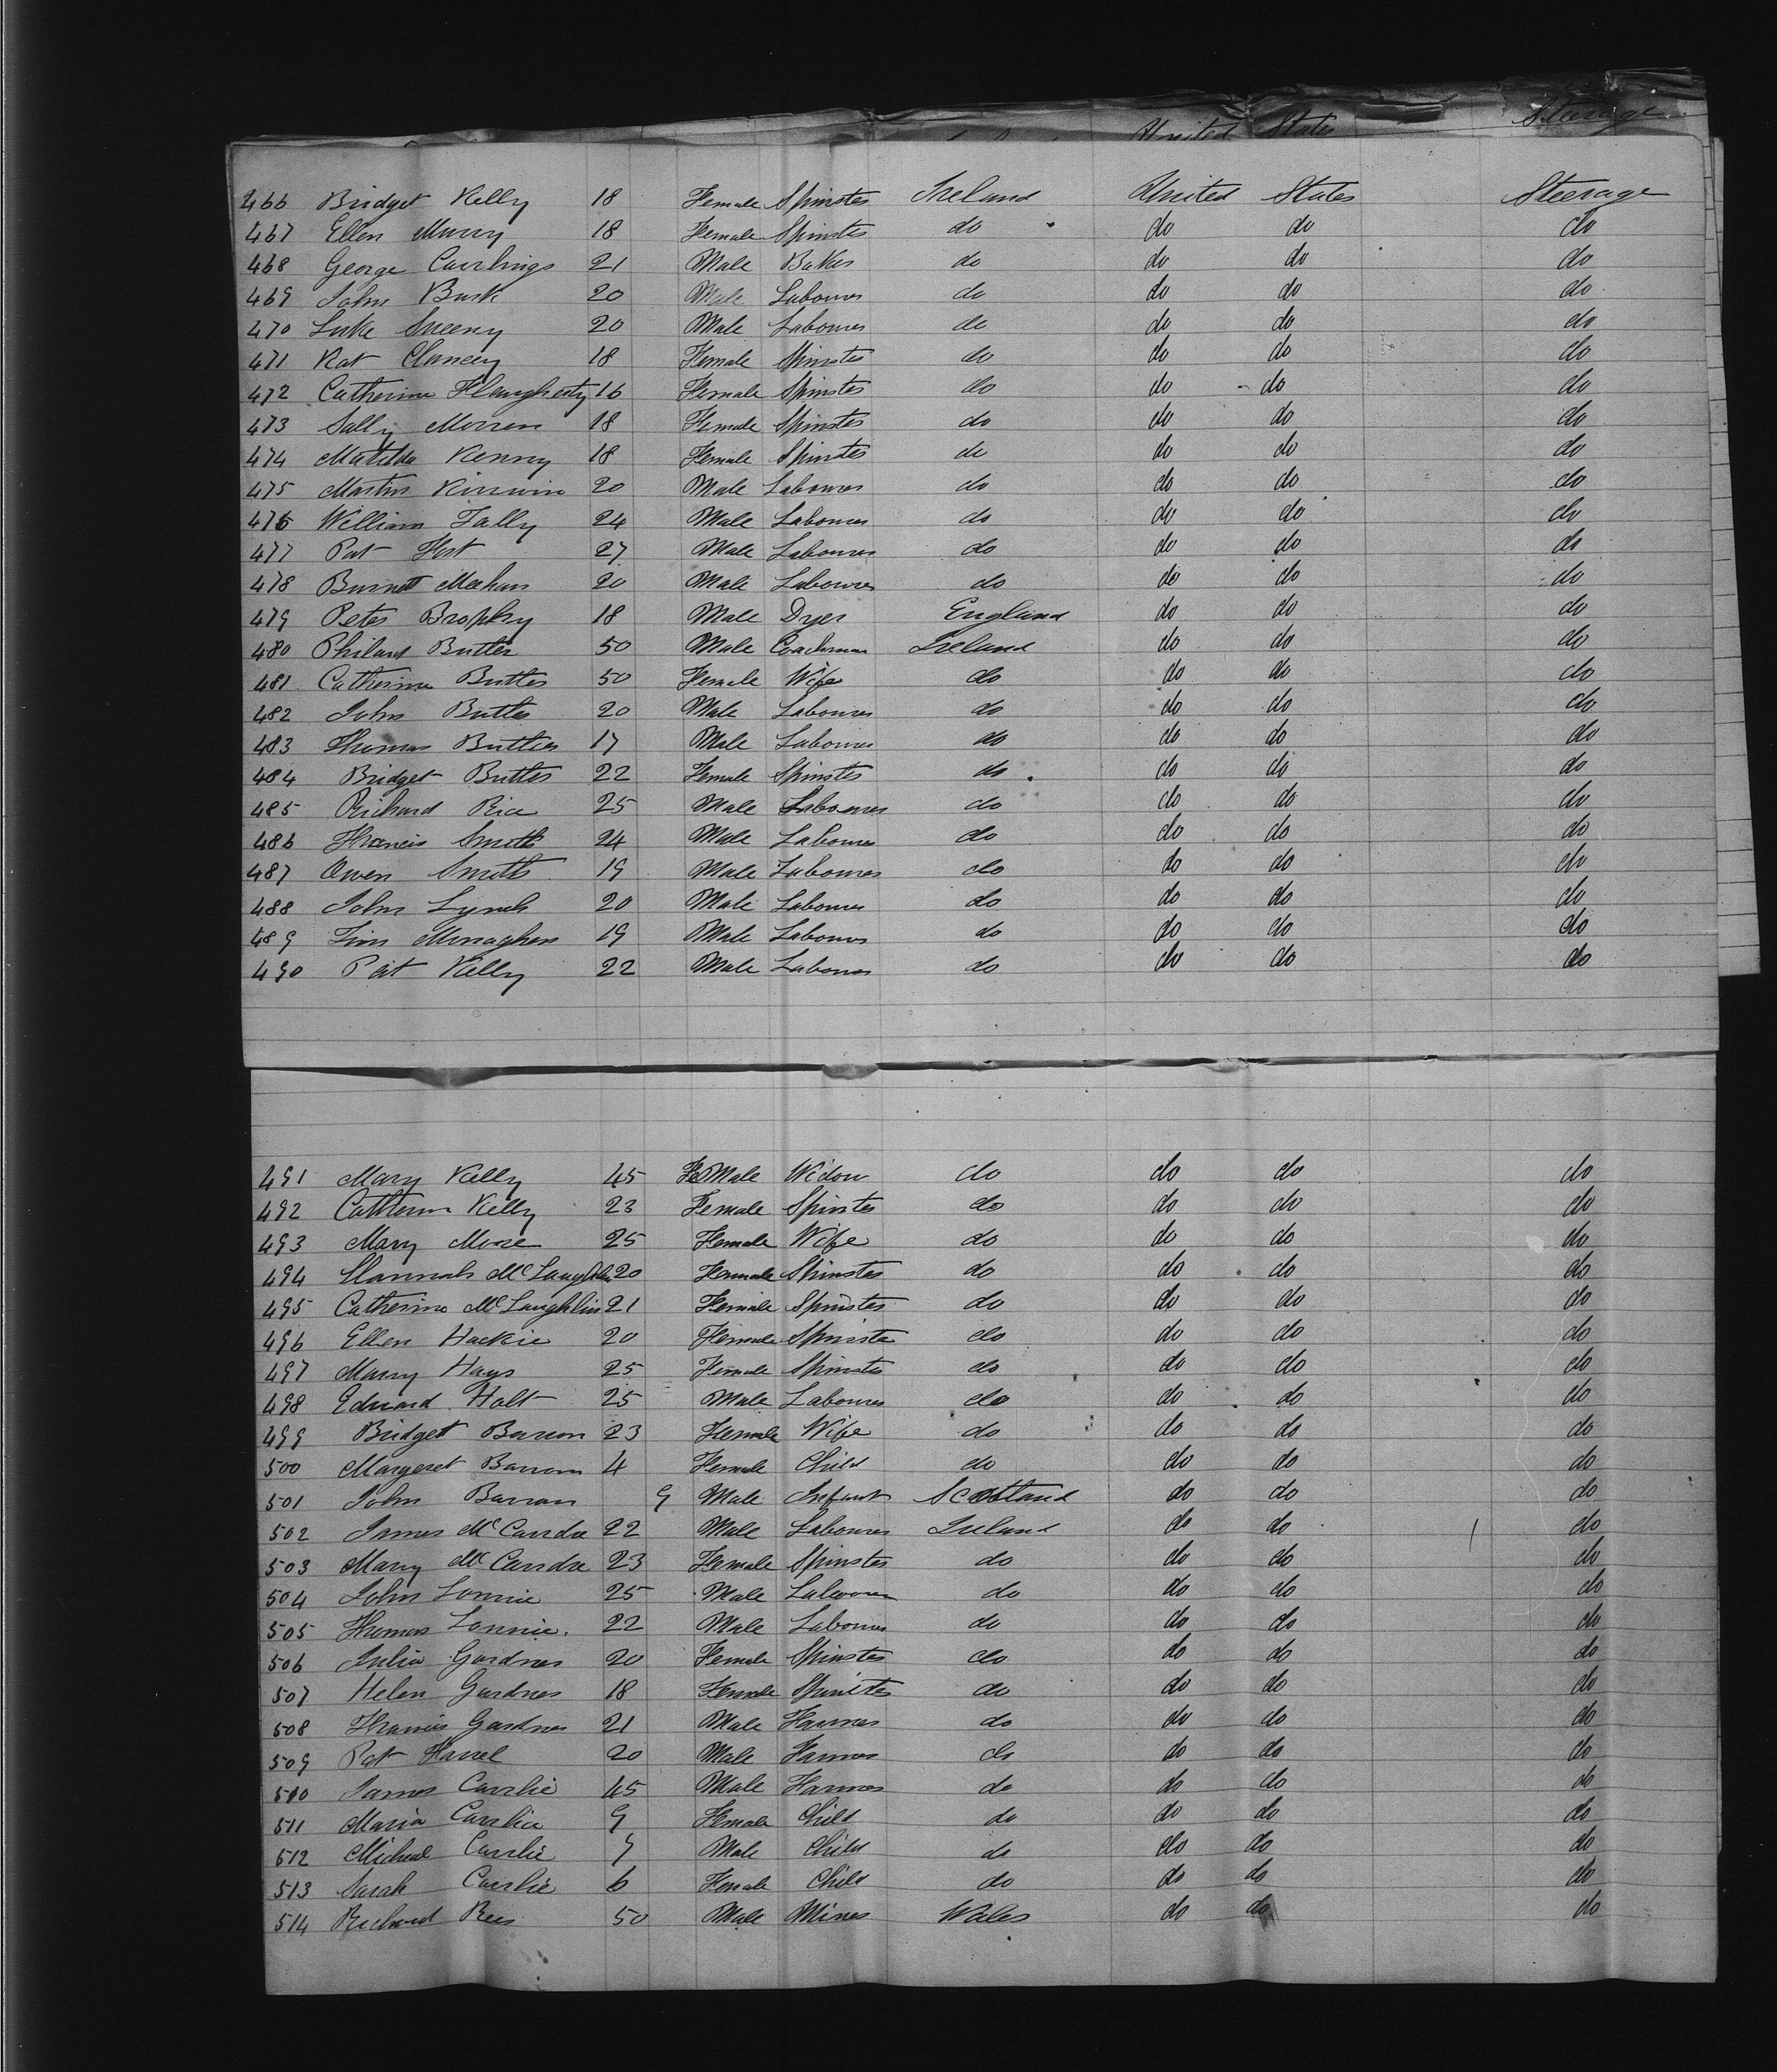 United States Steerage
466 Bridget Kelly 18 Female Spinster Ireland United States Steerage
467 Ellen Murry 18 Female Spinster do do do do
468 George 21 Male Baker do do do do
469 John Bush 20 Male Labourer do do do do
470 Luke Sweeny 20 Male Labourer do do do do
471 Kat Clancey 18 Female Spinster do do do do
472 Catherine Flaugherty 16 Female Spinster do do do do
473 Sally Morren 18 Female Spinster do do do do
474 Matilda Kenny 18 Female Spinster do do do do
475 Martin Kirwin 20 Male Labourer do do do do
476 William Tally 24 Male Labourer do do do do
477 Pat 27 Male Labourer do do do do
478 Meehan 20 Male Labourer do do do do
479 Peter Brophy 18 Male Dyer England do do do
480 Butler 50 Male Coachman Ireland do do do
481 Catherine Butler 50 Female Wife do do do do
482 John Butler 20 Male Labourer do do do do
483 Thomas Butler 17 Male Labourer do do do do
484 Bridget Butler 22 Female Spinster do do do do
485 Richard Rice 25 Male Labourer do do do do
486 Francis Smith 24 Male Labourer do do do do
487 Owen Smith 19 Male Labourer do do do do
488 John Lynch 20 Male Labourer do do do do
489 Tim Monaghan 19 Male Labourer do do do do
490 Pat Kelly 22 Male Labourer do do do do
491 Mary Kelly 45 FeMale Widow do do do do
492 Catherin Kelly 23 Female Spinster do do do do
493 Mary Moore 25 Female Wife do do do do
494 Hannah McLaughlin 20 Female Spinster do do do do
495 Catherine McLaughlin 21 Female Spinster do do do do
496 Ellen Hackie 20 Female Spinster do do do do
497 Mary Hays 25 Female Spinster do do do do
498 Edward Holt 25 Male Labourer do do do do
499 Bridget Barron 23 Female Wife do do do do
500 Margeret Barron 4 Female Child do do do do
501 John Barron 9 Male Infant Scotland do do do
502 James 22 Male Labourer Ireland do do do
503 Mary 23 Female Spinster do do do do
504 John Lonnie 25 Male Labourer do do do do
505 Thomas Lonnie. 22 Male Labourer do do do do
506 Julia Gardner 20 Female Spinster do do do do
507 Helen Gardner 18 Female Spinster do do do do
508 Francis Gardner 21 Male Farmer do do do do
509 Pat Farrel 20 Male Farmer do do do do
510 James Carrlie 45 Male Farmer do do do do
511 Maria Carrlie 9 Female Child do do do do
512 Micheal Carrlie Male Child do do do do
513 Sarah Carrlie 6 Female Child do do do do
514 Richard Rees 50 Male Miner Wales do do do